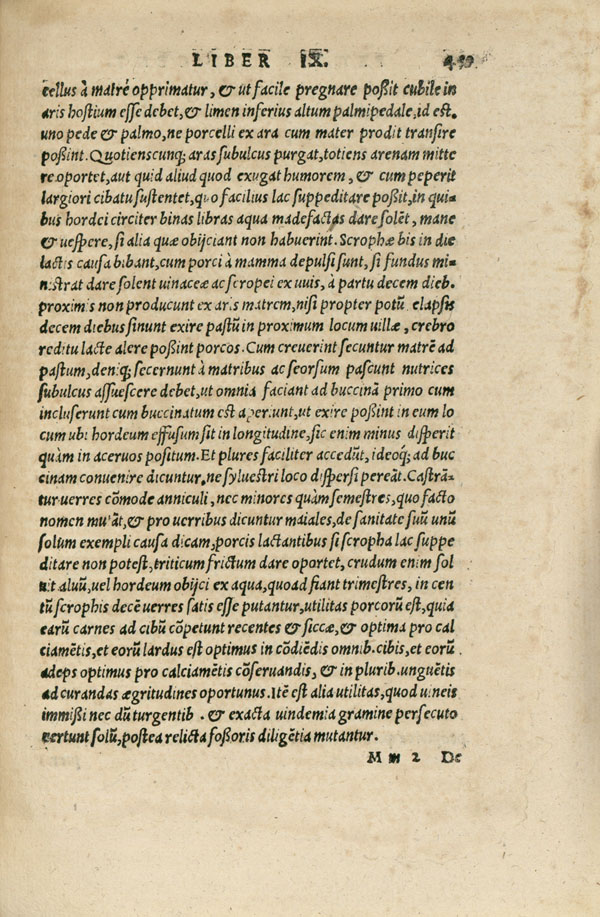 LIBER IX. 459
cellus à matré opprimatur, & ut facile pregnare poßit cubile in
aris hostium esse debet, & limen inferius altum palmipedale, id est.
uno pede & palmo, ne porcelli ex ara cum mater prodit transire
poßint. Quotienscunq; aras subulcus purgat, totiens arenam mitte
re oportet, aut quid aliud quod exugat humorem, & cum peperit
largiori cibatu sustentet, quo facilius lac suppeditare poßit, in qui-
bus hordei circiter binas libras aqua madefactas dare solēt, mane
& uespere, si alia quæ obijciant non habuerint. Scrophæ bis in die
lactis causa bibant, cum porci à mamma depulsi sunt, si fundus mi-
nistrat dare solent uinaceæ ac scropei ex uuis, à partu decem dieb.
proximis non producunt ex aris matrem, nisi propter potū elapsis
decem diebus sinunt exire pastū in proximum locum uillæ, crebro
reditu lacte alere poßint porcos. Cum creuerint secuntur matrē ad
pastum, deniq; secernunt à matribus ac seorsum pascunt nutrices
subulcus assuescere debet, ut omnia faciant ad buccinā primo cum
incluserunt cum buccinatum est aperiunt, ut exire poßint in eum lo
cum ubi hordeum effusum sit in longitudine, sic enim minus disperit
quàm in aceruos positum. Et plures faciliter accedūt, ideoq; ad buc
cinam conuenire dicuntur, ne syluestri loco dispersi pereāt. Castrā-
tur uerres cōmode anniculi, nec minores quàm semestres, quo facto
nomen mutāt, & pro uerribus dicuntur maiales, de sanitate suū unū
solum exempli causa dicam, porcis lactantibus si scropha lac suppe
ditare non potest, triticum frictum dare oportet, crudum enim sol
uit aluū, uel hordeum obijci ex aqua, quoad fiant trimestres, in cen
tū scrophis decē uerres satis esse putantur, utilitas porcorū est, quia
earū carnes ad cibū cōpetunt recentes & siccæ, & optima pro cal
ciamētis, et eorū lardus est optimus in cōdiēdis omnib. cibis, et eorū
adeps optimus pro calciamētis cōseruandis, & in plurib. unguētis
ad curandas ægritudines oportunus. Itē est alia utilitas, quod uineis
immißi nec dū turgentib. & exacta uindemia gramine persecuto
uertunt solū, postea relicta foßoris diligētia mutantur.
M m 2 De